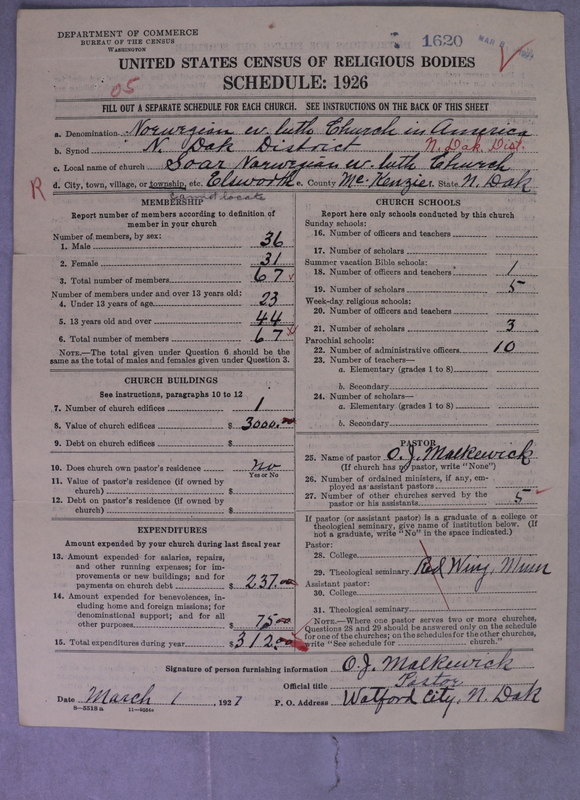 DEPARTMENT OF COMMERCE
BUREAU OF THE CENSUS
WASHINGTON
1620
MAR
UNITED STATES CENSUS OF RELIGIOUS BODIES
SCHEDULE: 1926
05
FILL OUT A SEPARATE SCHEDULE FOR EACH CHURCH. SEE INSTRUCTIONS ON THE BACK OF THIS SHEET
a. Denomination Norwegian ev. luth Church in America
b. Synod N. Dak District N. Dak Dist.
c. Local name of church Soar Norwegian ev. luth Church
R d. City, town, village, or township, etc. Elsworth e. County McKenzie State N. Dak
Cannot locate
MEMBERSHIP
Report number of members according to definition of
member in your church
Number of members, by sex:
1. Male 36
2. Female 31
3. Total number of members 67
Number of members under and over 13 years old:
4. Under 13 years of age 23
5. 13 years old and over 44
6. Total number of members 67
NOTE.—The total given under Question 6 should be the
same as the total of males and females given under Question 3.
CHURCH BUILDINGS
See instructions, paragraphs 10 to 12
7. Number of church edifices 1
8. Value of church edifices $ 3000.00
9. Debt on church edifices $
10. Does church own pastor's residence No
Yes or No
11. Value of pastor's residence (if owned by
church) $
12. Debt on pastor's residence (if owned by
church) $
EXPENDITURES
Amount expended by your church during last fiscal year
13. Amount expended for salaries, repairs,
and other running expenses; for im-
provements or new buildings; and for
payments on church debt $ 237.00
14. Amount expended for benevolences, in-
cluding home and foreign missions; for
denominational support; and for all
other purposes $ 75.00
15. Total expenditures during year $ 312.00
CHURCH SCHOOLS
Report here only schools conducted by this church
Sunday schools:
16. Number of officers and teachers
17. Number of scholars
Summer vacation Bible schools:
18. Number of officers and teachers 1
19. Number of scholars 5
Week-day religious schools:
20. Number of officers and teachers
21. Number of scholars 3
Parochial schools:
22. Number of administrative officers 10
23. Number of teachers—
a. Elementary (grades 1 to 8)
b. Secondary
24. Number of scholars—
a. Elementary (grades 1 to 8)
b. Secondary
PASTOR
25. Name of pastor O. J. Malkewick
(If church has no pastor, write "None")
26. Number of ordained ministers, if any, em-
ployed as assistant pastors
27. Number of other churches served by the
pastor or his assistants 5
If pastor (or assistant pastor) is a graduate of a college or
theological seminary, give name of institution below. (If
not a graduate, write "No" in the space indicated.)
Pastor:
28. College
29. Theological seminary Red Wing, Minn
Assistant pastor:
30. College
31. Theological seminary
NOTE.—Where one pastor serves two or more churches,
Questions 28 and 29 should be answered only on the schedule
for one of the churches; on the schedules for the other churches,
write "See schedule for church."
Signature of person furnishing information O. J. Malkewick
Official title Pastor
Date March 1, 1927 P. O. Address Watford City, N. Dak